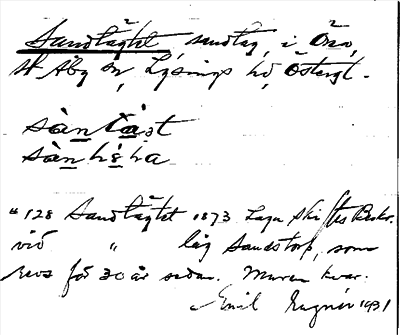 Sandtäget, sandtag, i Öra,
St Åby sn, Lysings hd, Östergl.
sàn tå̀gt
sàn hé̀ha
"128 Sandtäget 1873. Laga skiftes Beskr.
vid " låg Sandstorp, som
revs för 30 år sedan. Muren kvar.
Emil 1931